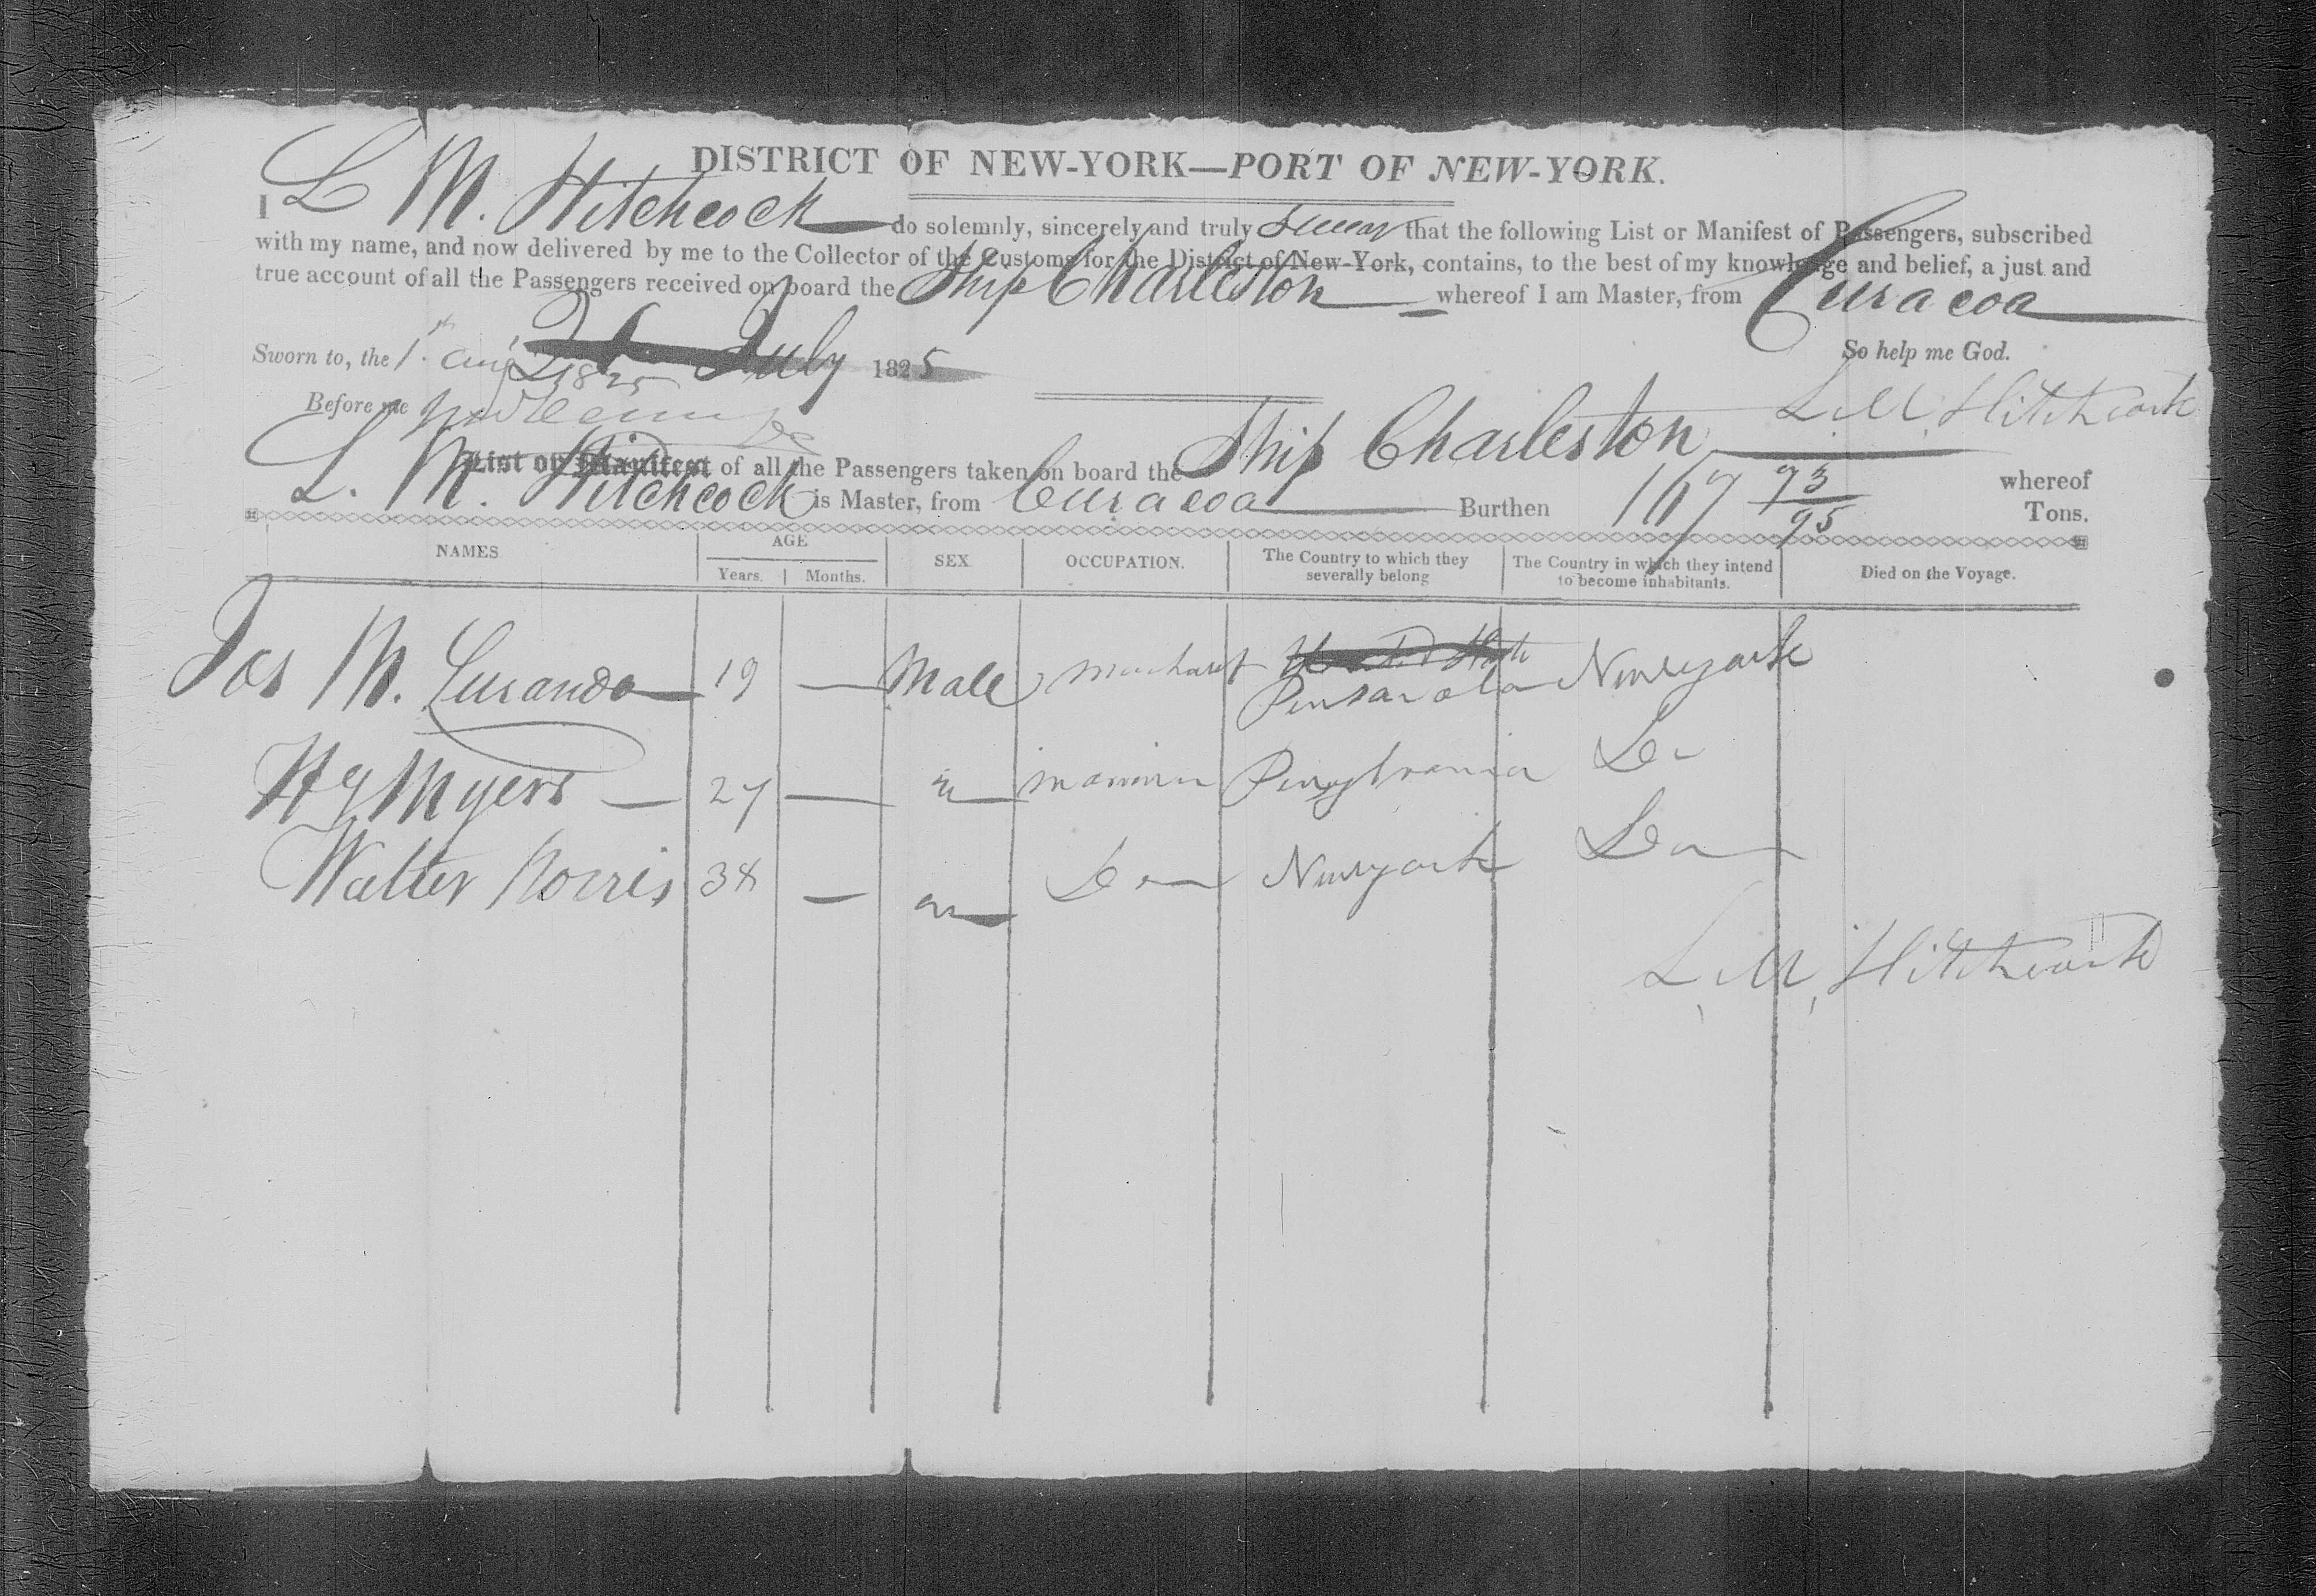 DISTRICT OF NEW-YORK—PORT OF NEW-YORK.
I L M. Hitchcock do solemnly, sincerely and truly swear that the following List or Manifest of Passengers, subscribed
with my name, and now delivered by me to the Collector of the Customs for the District of New-York, contains, to the best of my knowledge and belief, a just and
true account of all the Passengers received on board the Ship Charleston whereof I am Master, from Curacoa
Sworn to, the 1st. Aug 1825 July 1825 So help me God.
Before me L. M. Hitchcock
List or Manifest of all the Passengers taken on board the Ship Charleston whereof
L. M. Hitchcock is Master, from Curacoa Burthen 167 93/95 Tons.
NAMES AGE SEX. OCCUPATION. The Country to which they severally belong The Country in which they intend to become inhabitants. Died on the Voyage.
Years. Months.
Jos M. Luranda 19 — Male Merchant Pensacola Newyork
Hy Myers — 27 — mariner Pensylvania Do
Walter Norris 38 — Do Newyork Do
L. M. Hitchcock